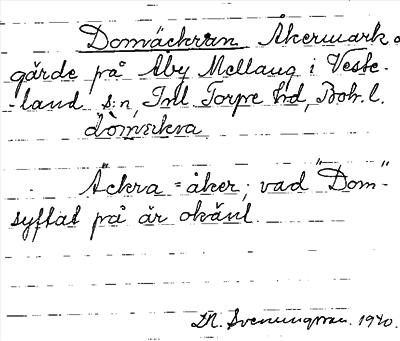 Domäckran Åkermark o
gärde på Åby Mellaug i Veste-
-land s:n, Inl Torpe hd, Boh. l.
dömækra
Äckra = åker; vad "Dom"-
syftat på är okänt.
M. Svenungsson. 1940.